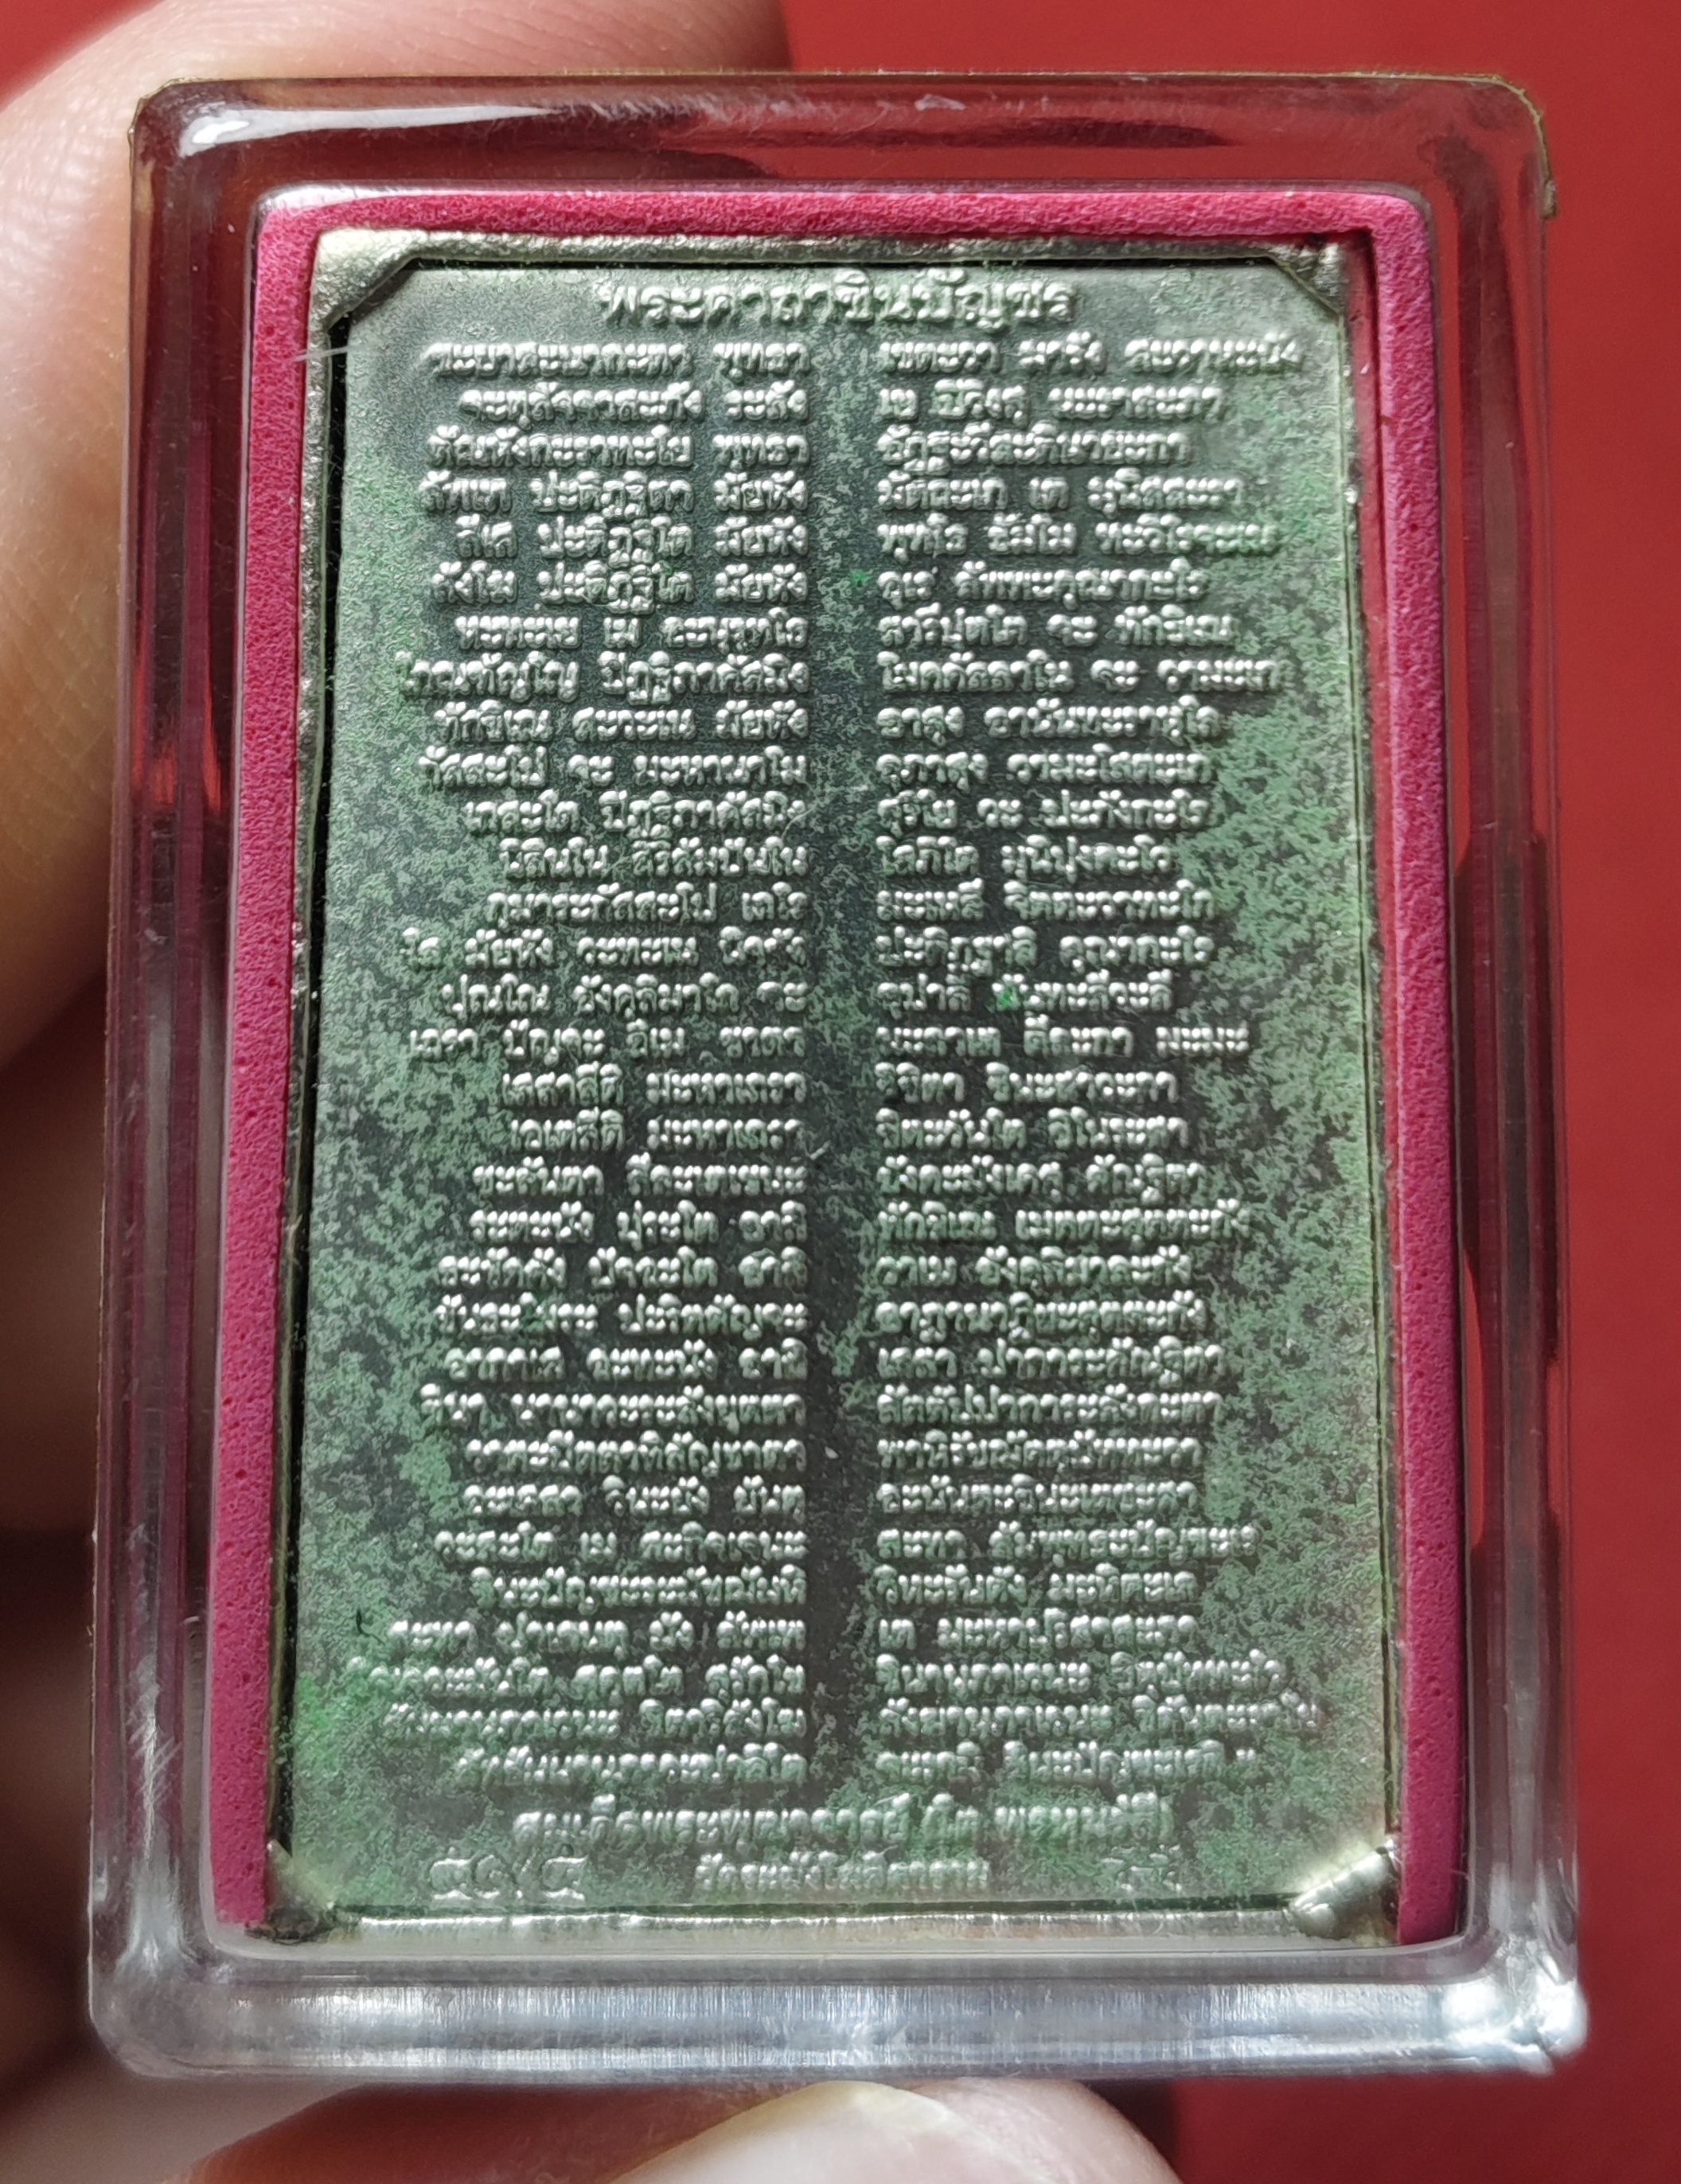 พระคาถาชินบัญชร
พุทธา เชตะวา มารัง สะวาหะนัง
จะตุสัจจาสะภัง ระสัง เย ปิวิงสุ นะราสะภา
ตัณหังกะราทะโย พุทธา อัฏฐะวีสะตินายะกา
สัพเพ ปะติฏฐิตา มัยหัง มัตถะเก เต มุนิสสะรา
สีเส ปะติฏฐิโต มัยหัง พุทโธ ธัมโม ทะวิโลจะเน
สังโฆ ปะติฏฐิโต มัยหัง อุเร สัพพะคุณากะโร
หะทะเย เม อะนุรุทโธ สารีปุตโต จะ ทักขิเณ
โกณฑัญโญ ปิฏฐิภาคัสมิง โมคคัลลาโน จะ วามะเก
ทักขิเณ สะวะเน มัยหัง อาสุง อานันทะราหุโล
กัสสะโป จะ มะหานาโม อุภาสุง วามะโสตะเก
เกสะโต ปิฏฐิภาคัสมิง สุริโย วะ ปะภังกะโร
นิสินโน สิริสัมปันโน โสภิโต มุนิปุงคะโว
กุมาระกัสสะโป เถโร มะเหสี จิตตะวาทะโก
โส มัยหัง วะทะเน นิจจัง ปะติฏฐาสิ คุณากะโร
ปุณโณ อังคุลิมาโล จะ อุปาลี นันทะสีวะลี
เถรา ปัญจะ อิเม ชาตา นะลาเต ติละกา มะมะ
เสสาสีติ มะหาเถรา วิชิตา ชินะสาวะกา
เอเตสีติ มะหาเถรา ชิตะวันโต ชิโนระสา
ชะลันตา สีละเตเชนะ อังคะมังเคสุ สัณฐิตา
ระตะนัง ปุระโต อาสิ ทักขิเณ เมตตะสุตตะกัง
ธะชัคคัง ปัจฉะโต อาสิ วาเม อังคุลิมาละกัง
ขันธะโมระ ปะริตตัญจะ อาฏานาฏิยะสุตตะกัง
อากาเส ฉะทะนัง อาสิ เสสา ปาการะสัณฐิตา
ชินา นานาวะระสังยุตตา สัตตัปปาการะลังกะตา
วาตะปิตตาทิสัญชาตา พาหิรัชฌัตตุปัททะวา
อะเสสา วินะยัง ยันตุ อะนันตะชินะเตชะสา
วะสะโต เม สะกิจเจนะ สะทา สัมพุทธะปัญชะเร
ชินะปัญชะระมัชฌัมหิ วิหะรันตัง มะหีตะเล
สะทา ปาเลนตุ มัง สัพเพ เต มะหาปุริสาสะภา
สมเด็จพระพุฒาจารย์ (โต พรหมรังสี)
วัดระฆังโฆสิตาราม